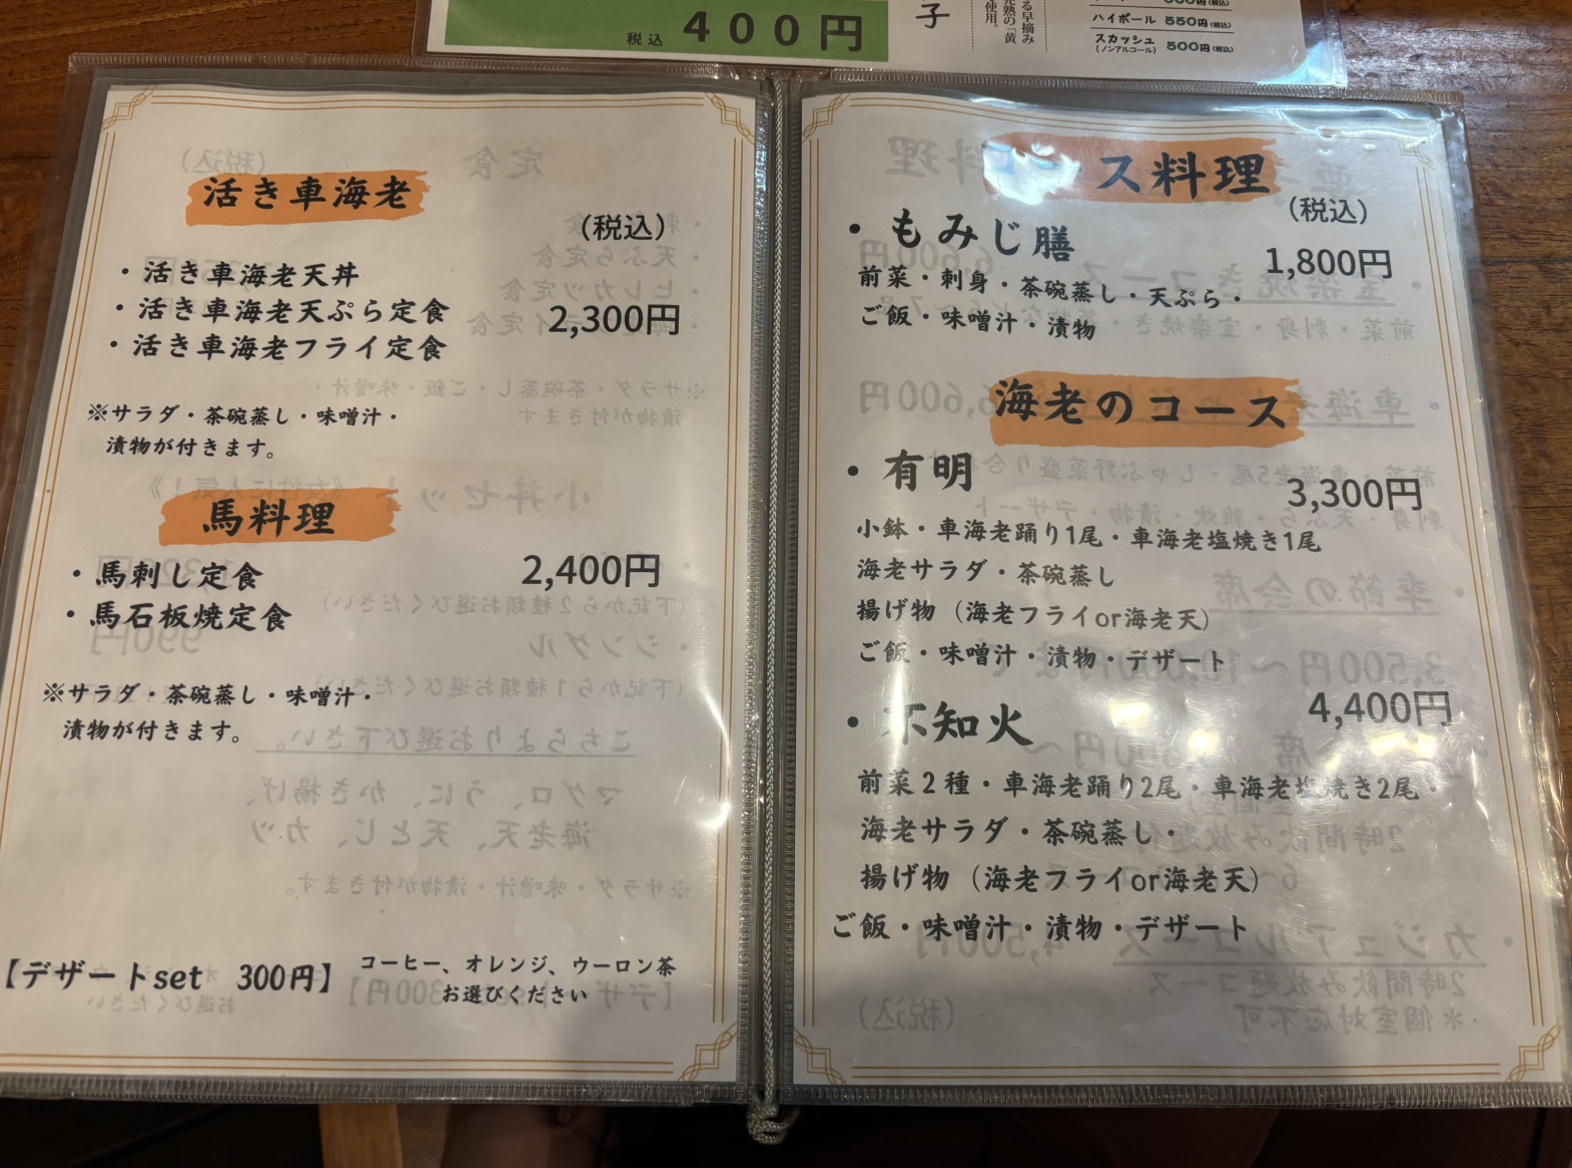 税込 400円
子
る早摘み
完熟の「黄
使用。
ハイボール 550円(税込)
スカッシュ 500円(税込)
(ノンアルコール)
活き車海老
(税込)
・活き車海老天丼
・活き車海老天ぷら定食 2,300円
・活き車海老フライ定食
※サラダ・茶碗蒸し・味噌汁・
漬物が付きます。
馬料理
・馬刺し定食 2,400円
・馬石板焼定食
※サラダ・茶碗蒸し・味噌汁・
漬物が付きます。
【デザートset 300円】 コーヒー、オレンジ、ウーロン茶
お選びください
ス料理
(税込)
・もみじ膳 1,800円
前菜・刺身・茶碗蒸し・天ぷら・
ご飯・味噌汁・漬物
海老のコース
・有明 3,300円
小鉢・車海老踊り1尾・車海老塩焼き1尾
海老サラダ・茶碗蒸し
揚げ物(海老フライor海老天)
ご飯・味噌汁・漬物・デザート
・不知火 4,400円
前菜2種・車海老踊り2尾・車海老塩焼き2尾・
海老サラダ・茶碗蒸し・
揚げ物(海老フライor海老天)
ご飯・味噌汁・漬物・デザート